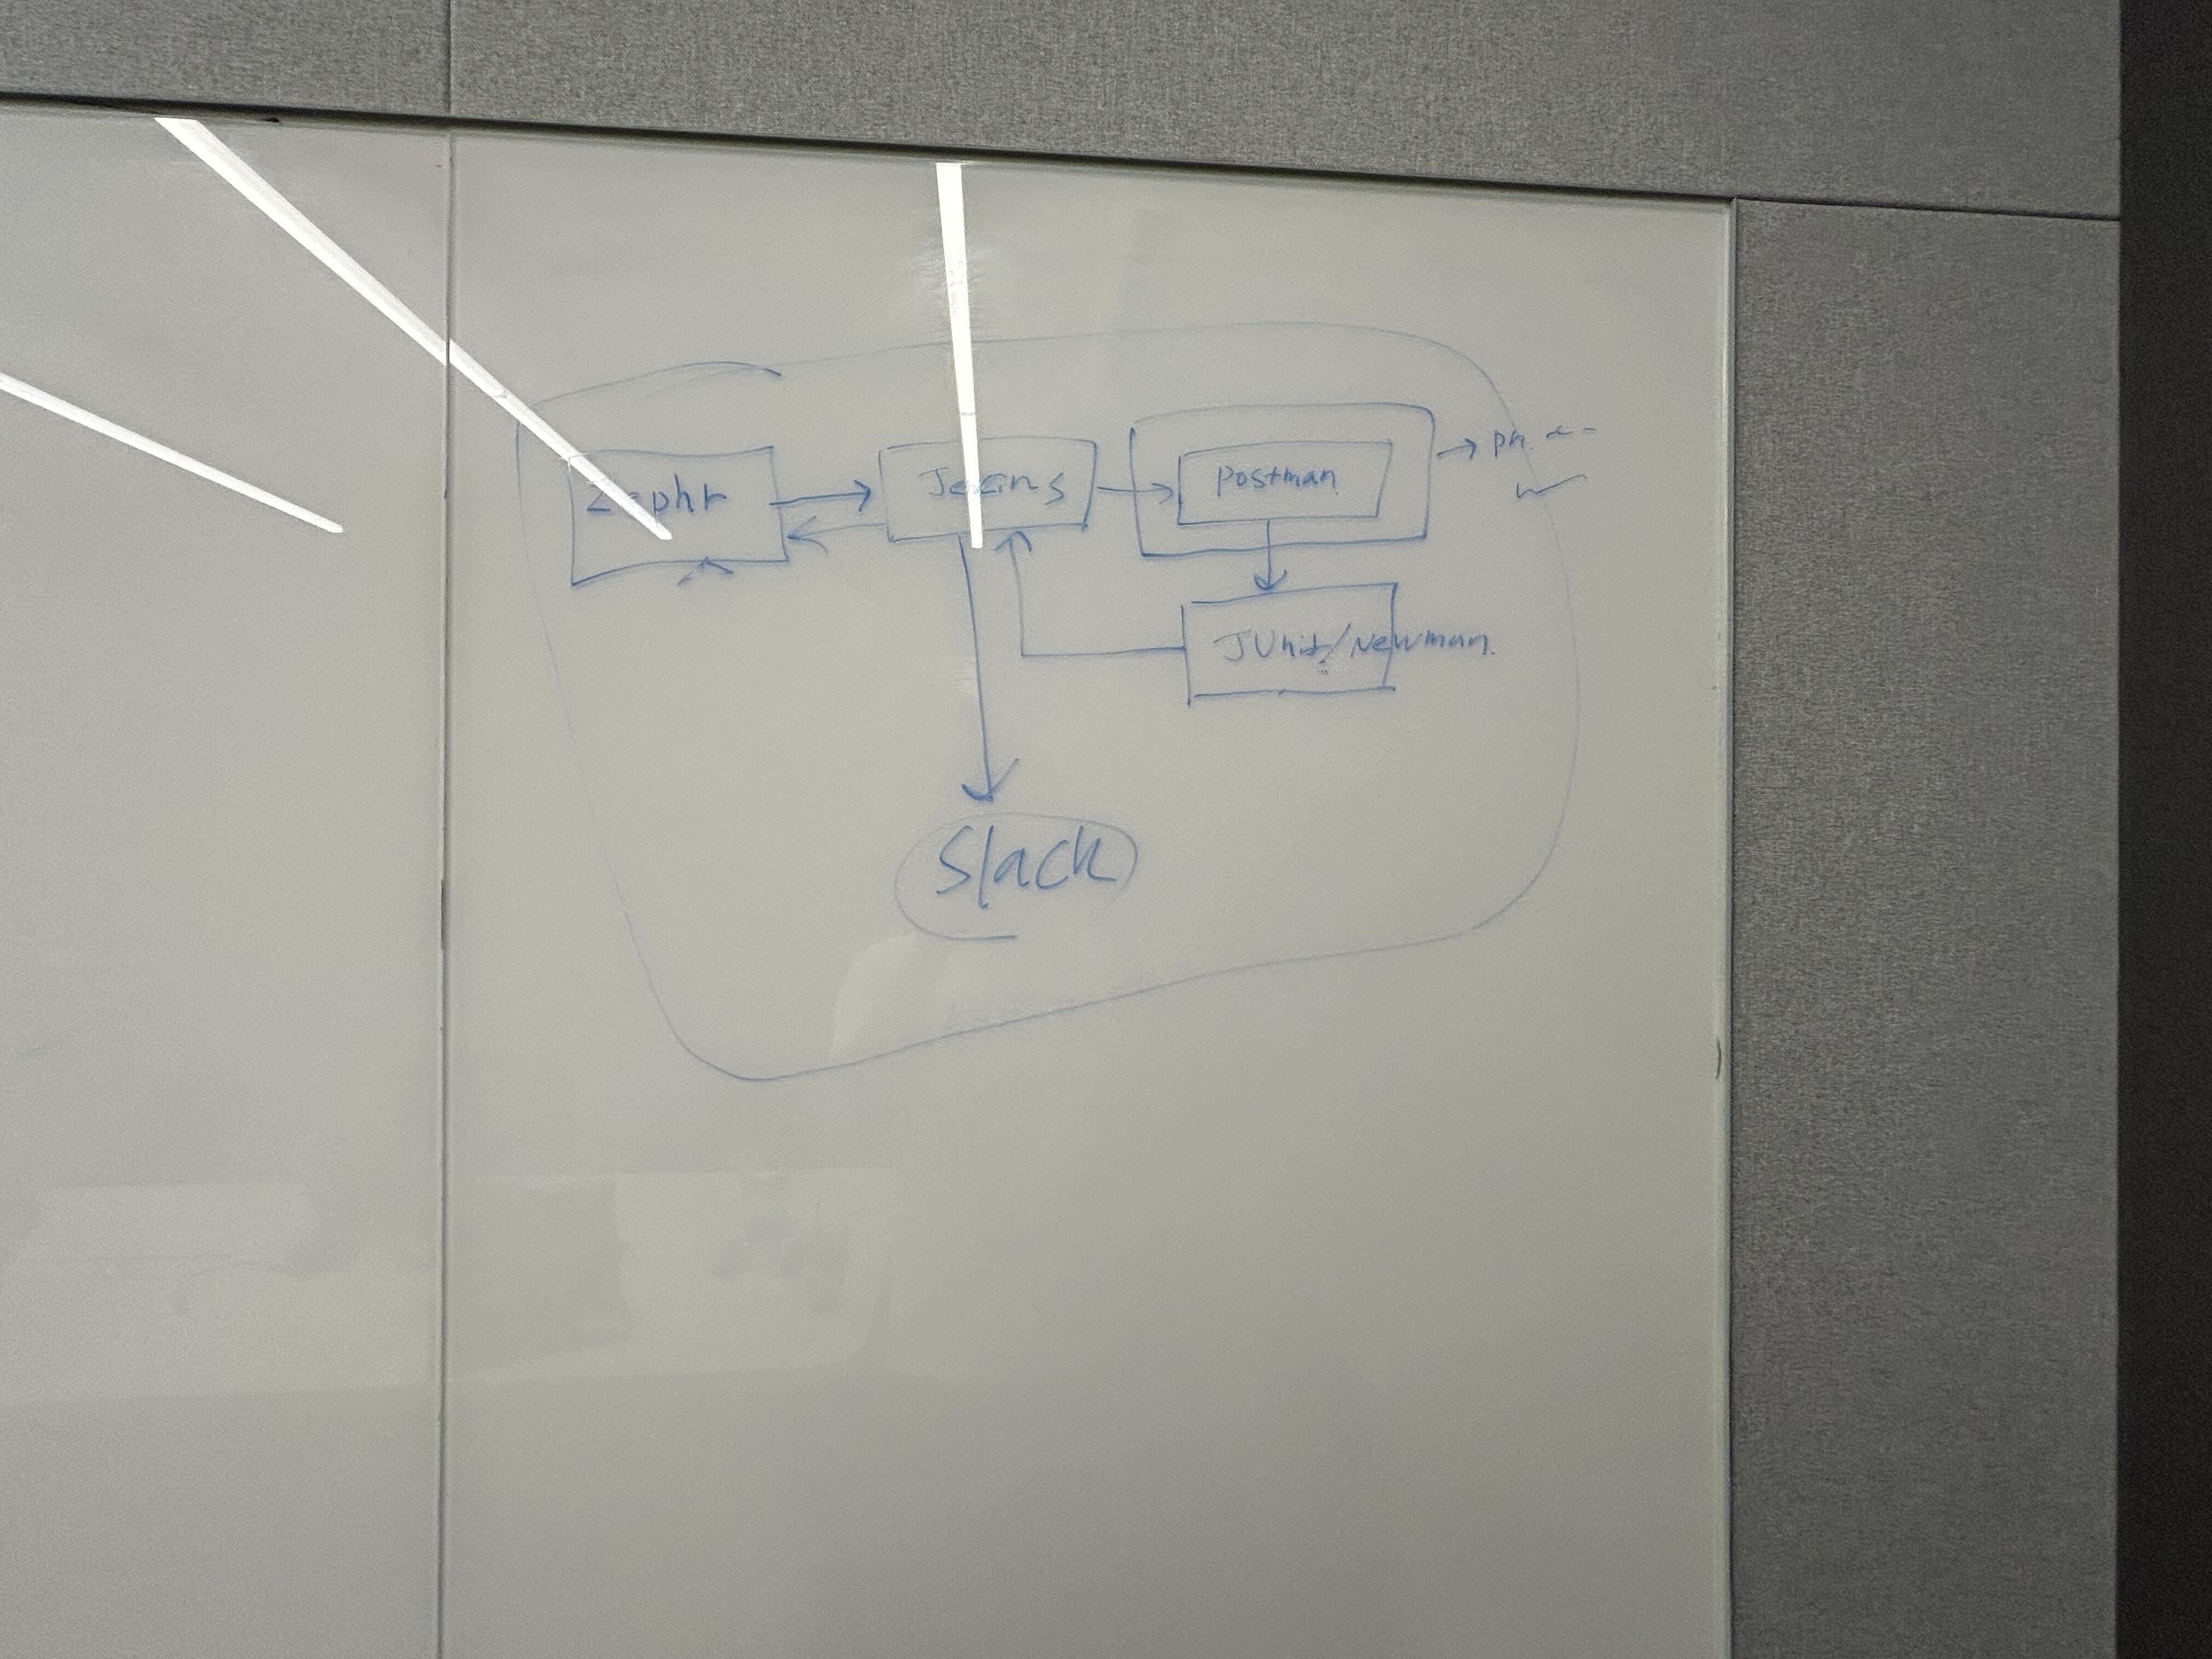 Zephr
Jekins
Postman
JUnit/Newman.
Slack